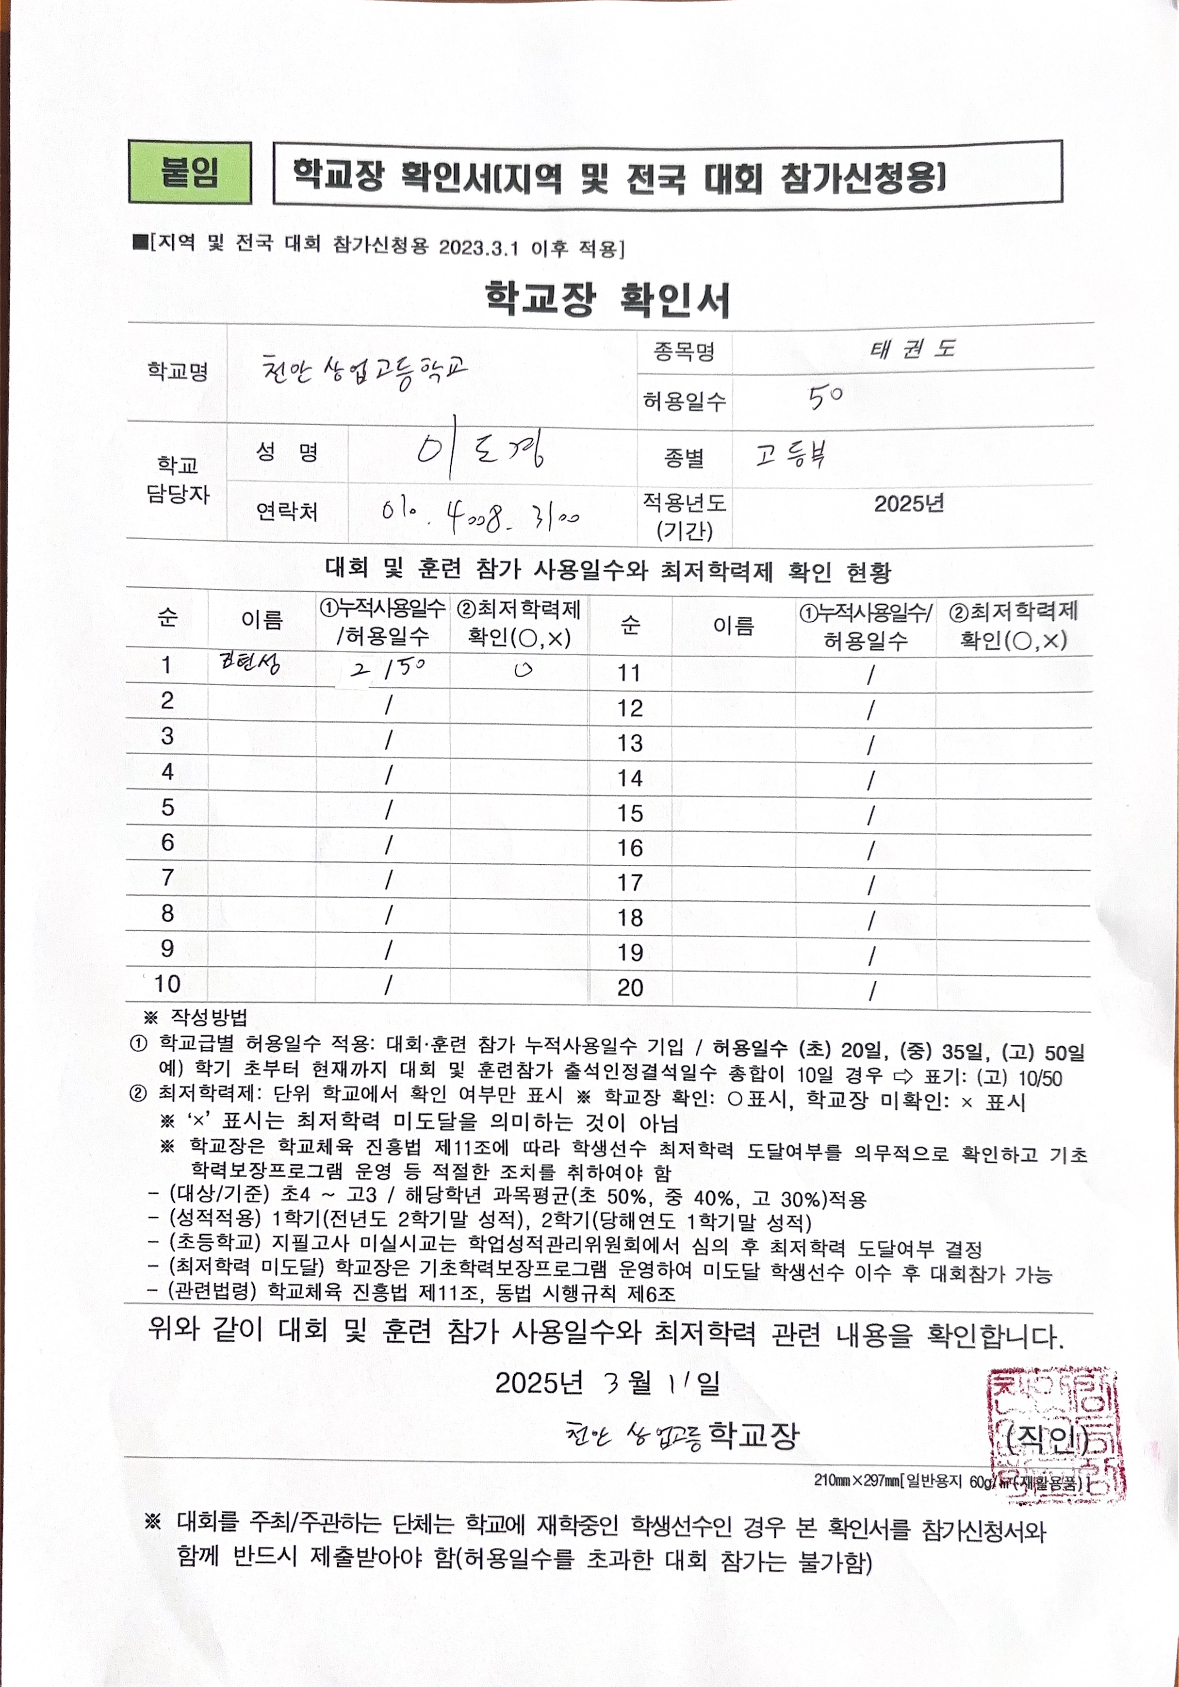 붙임
학교장 확인서(지역 및 전국 대회 참가신청용)
■[지역 및 전국 대회 참가신청용 2023.3.1 이후 적용]
학교장 확인서
학교명 천안상업고등학교 종목명 태권도
허용일수 50
학교 담당자 성 명 이도경 종별 고등부
연락처 010. 4008. 3100 적용년도 (기간) 2025년
대회 및 훈련 참가 사용일수와 최저학력제 확인 현황
순 이름 ①누적사용일수/허용일수 ②최저학력제 확인(○,×) 순 이름 ①누적사용일수/허용일수 ②최저학력제 확인(○,×)
1 현성 2 / 50 ○ 11 /
2 / 12 /
3 / 13 /
4 / 14 /
5 / 15 /
6 / 16 /
7 / 17 /
8 / 18 /
9 / 19 /
10 / 20 /
※ 작성방법
① 학교급별 허용일수 적용: 대회·훈련 참가 누적사용일수 기입 / 허용일수 (초) 20일, (중) 35일, (고) 50일
예) 학기 초부터 현재까지 대회 및 훈련참가 출석인정결석일수 총합이 10일 경우 ⇨ 표기: (고) 10/50
② 최저학력제: 단위 학교에서 확인 여부만 표시 ※ 학교장 확인: ○표시, 학교장 미확인: × 표시
※ ‘×’ 표시는 최저학력 미도달을 의미하는 것이 아님
※ 학교장은 학교체육 진흥법 제11조에 따라 학생선수 최저학력 도달여부를 의무적으로 확인하고 기초
학력보장프로그램 운영 등 적절한 조치를 취하여야 함
- (대상/기준) 초4 ~ 고3 / 해당학년 과목평균(초 50%, 중 40%, 고 30%)적용
- (성적적용) 1학기(전년도 2학기말 성적), 2학기(당해연도 1학기말 성적)
- (초등학교) 지필고사 미실시교는 학업성적관리위원회에서 심의 후 최저학력 도달여부 결정
- (최저학력 미도달) 학교장은 기초학력보장프로그램 운영하여 미도달 학생선수 이수 후 대회참가 가능
- (관련법령) 학교체육 진흥법 제11조, 동법 시행규칙 제6조
위와 같이 대회 및 훈련 참가 사용일수와 최저학력 관련 내용을 확인합니다.
2025년 3월 11일
천안상업고등학교장 (직인)
210㎜×297㎜[일반용지 60g/㎡(재활용품)]
※ 대회를 주최/주관하는 단체는 학교에 재학중인 학생선수인 경우 본 확인서를 참가신청서와
함께 반드시 제출받아야 함(허용일수를 초과한 대회 참가는 불가함)